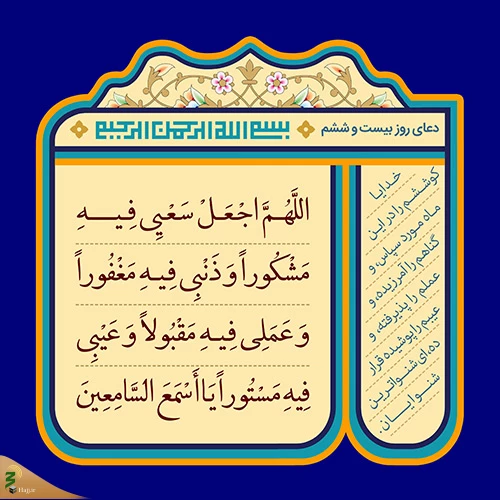 دعای روز بیست و ششم
بسم الله الرحمن الرحیم
اللَّهُمَّ اجْعَلْ سَعْیِی فِیهِ
مَشْکُوراً وَ ذَنْبِی فِیهِ مَغْفُوراً
وَ عَمَلِی فِیهِ مَقْبُولاً وَ عَیْبِی
فِیهِ مَسْتُوراً یَا أَسْمَعَ السَّامِعِینَ
خدایا
کوششم را در این
ماه مورد سپاس، و
گناهم را آمرزیده، و
عملم را پذیرفته، و
عیبم را پوشیده قرار
ده، ای شنواترین
شنوایان.
Hajj.ir